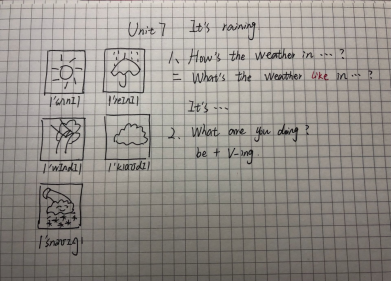 Unit 7 It's raining
1、How's the weather in …?
= What's the weather like in …?
It's …
2. What are you doing?
be + V-ing
|'sʌnɪ| |'reɪnɪ|
|'wɪndɪ| |'klaʊdɪ|